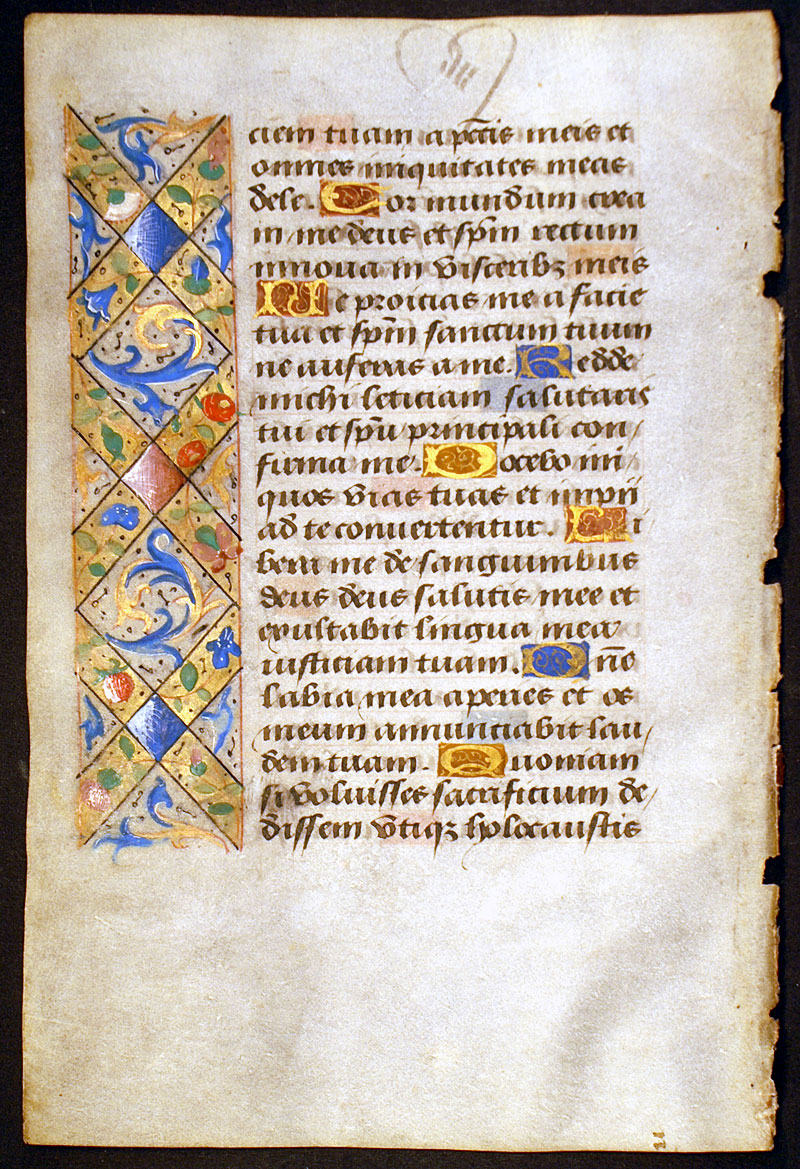 ciem tuam a pctis meis et
omnes iniquitates meas
dele. Cor mundum crea
in me deus et spm rectum
innoua in visceribz meis
Ne proicias me a facie
tua et spm sanctum tuum
ne auferas a me. Redde
michi leticiam salutaris
tui et spu principali con/
firma me. Docebo ini
quos vias tuas et impii
ad te conuertentur. Li
bera me de sanguinibus
deus deus salutis mee et
exultabit lingua mea
iusticiam tuam. Dne
labia mea aperies et os
meum annunciabit lau/
dem tuam. Quoniam
si voluisses sacrificium de/
dissem vtiqz holocaustis